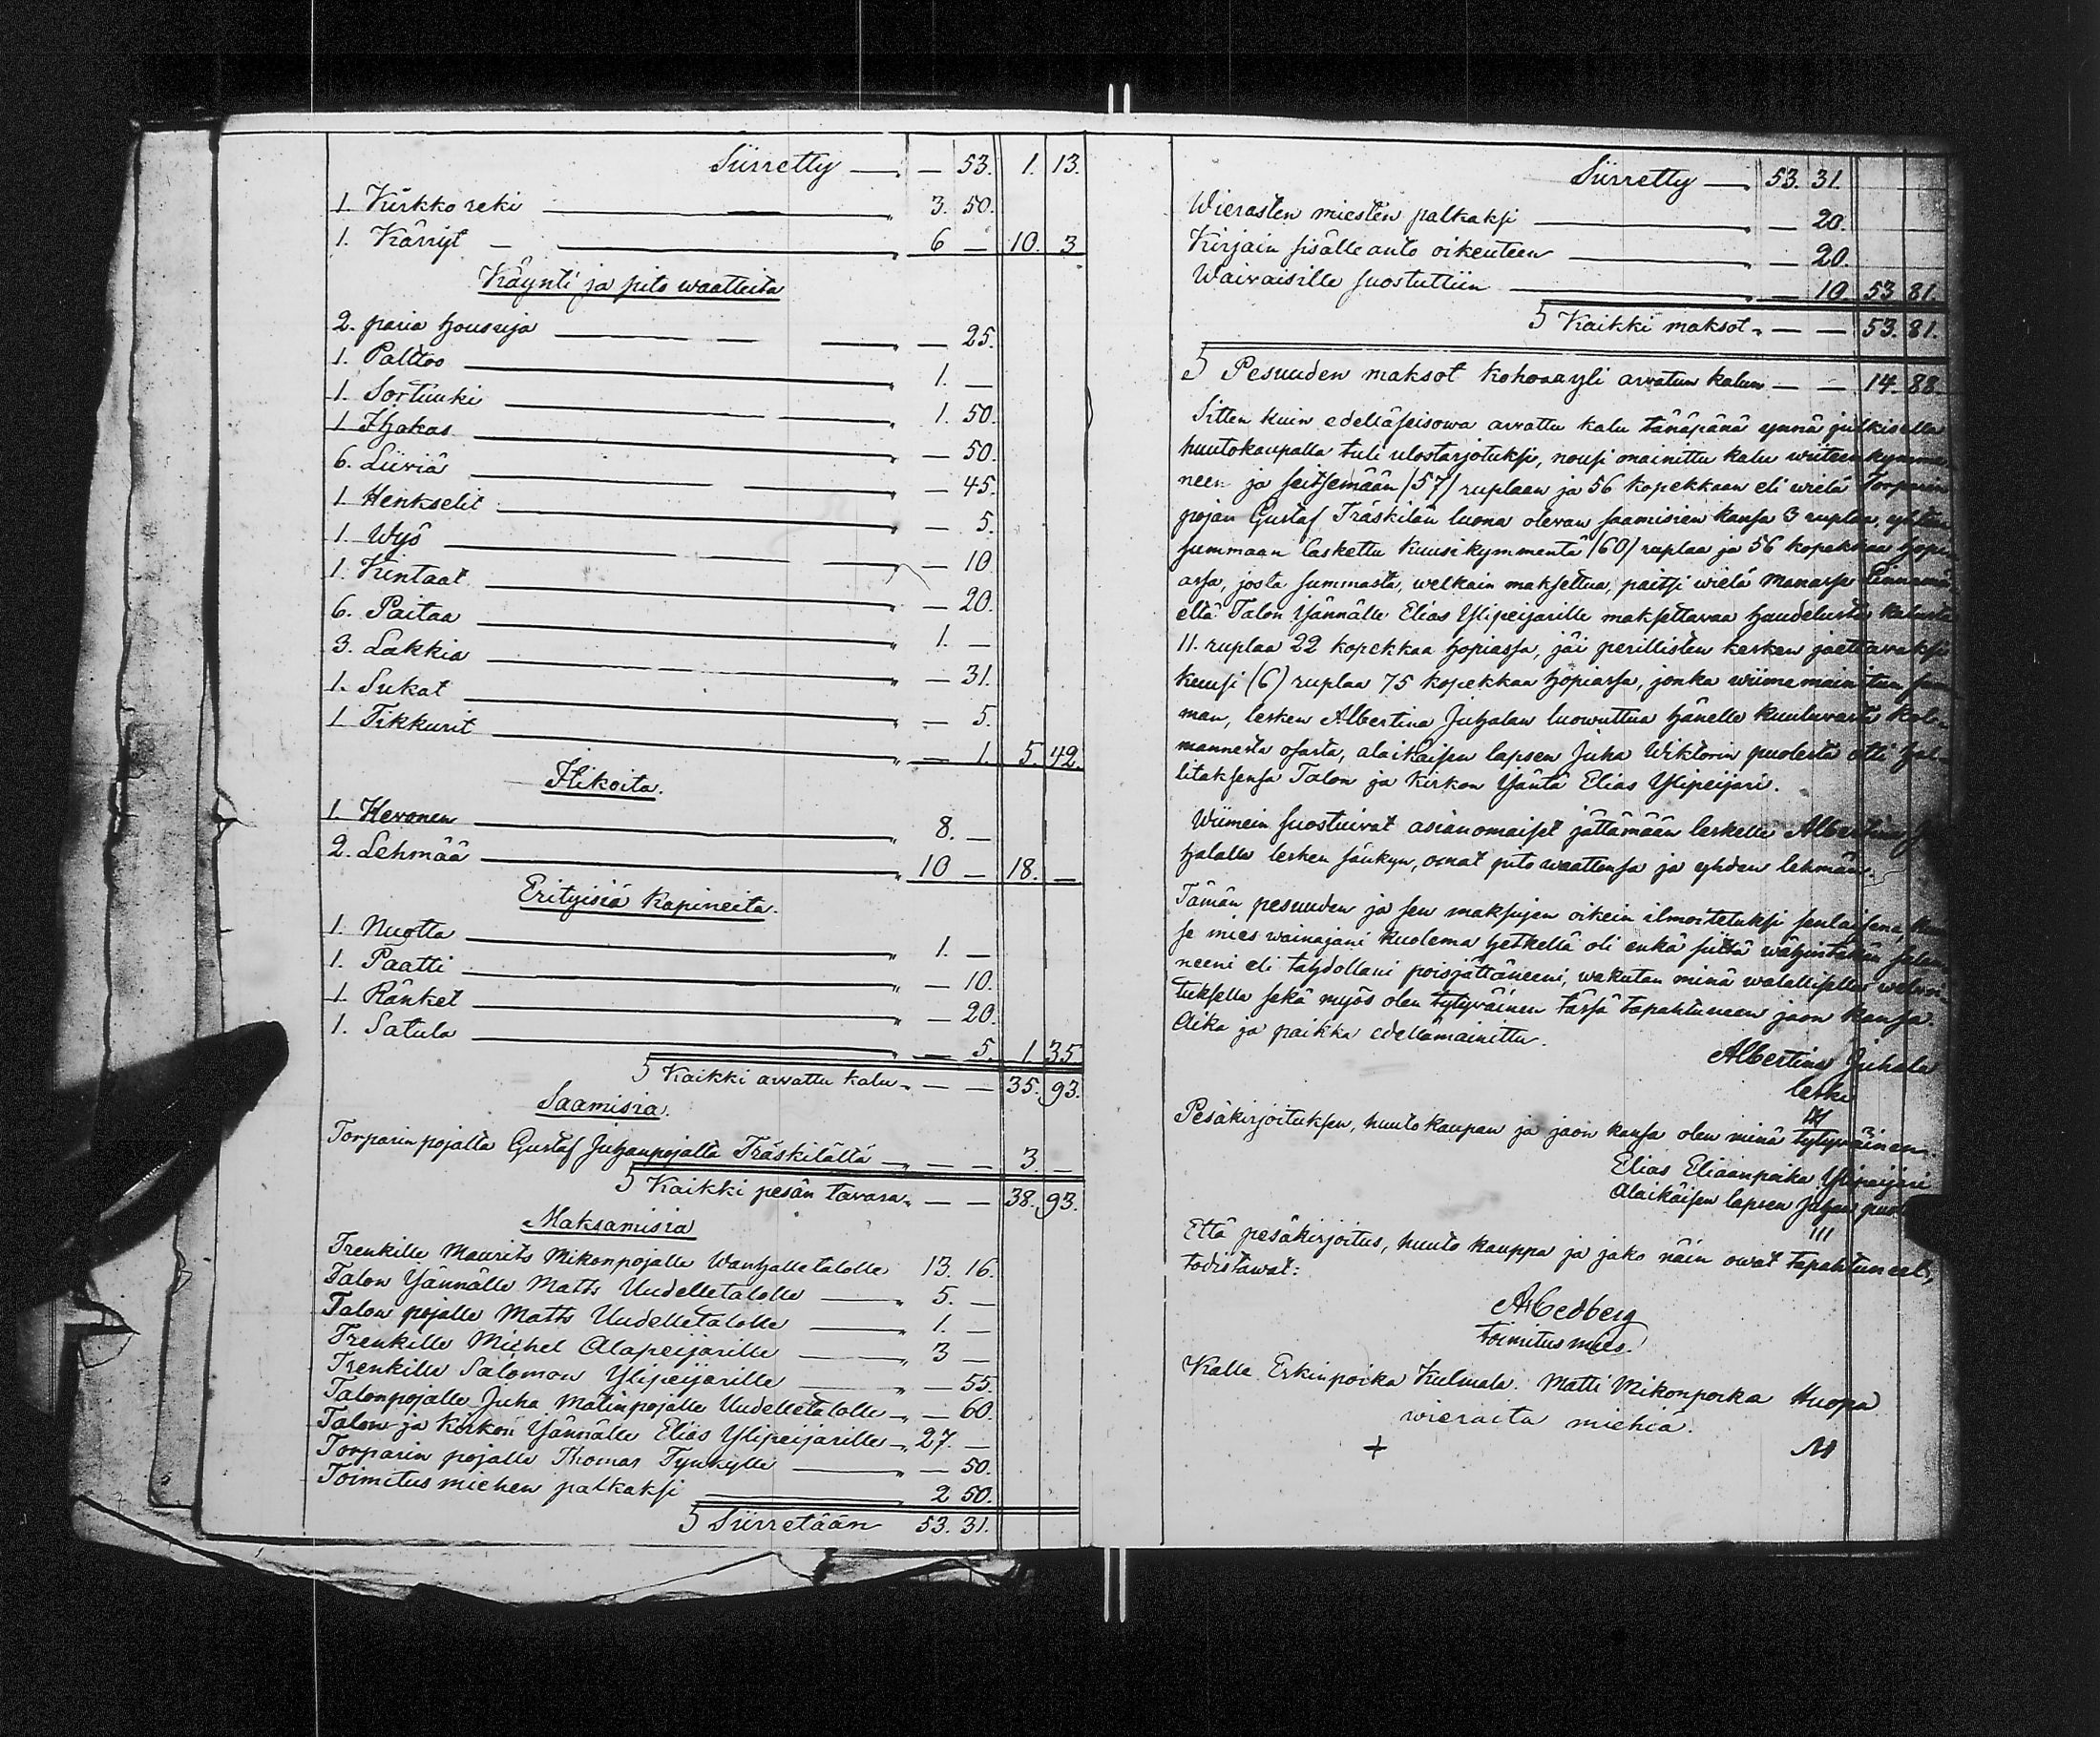 Siirretty — 53. 1. 13.
1. Kirkko reki 3. 50.
1. Kärryt 6 — 10. 3
Käynti ja pito waatteita
2. paria housuja — 25.
1. Palttoo 1. —
1. Sortuuki 1. 50.
1 Ihokas — 50.
6. Liiviä — 45.
1 Henkselit — 5.
1. Wyö — 10
1. Kintaat — 20.
6. Paitaa 1. —
3. Lakkia — 31.
1. Sukat — 5.
1 Tikkurit — 1. 5. 42.
Itikoita.
1. Hevonen 8. —
2. Lehmää 10 — 18. —
Erityisiä Kapineita.
1. Nuotta 1. —
1. Paatti — 10.
1. Ränket — 20.
1. Satula — 5. 1 35.
Kaikki arvattu kalu — — 35. 93.
Saamisia.
Torparinpojalta Gustaf Juhanpojalta Träskilältä — — 3. —
Kaikki pesän tavara — — 38. 93.
Maksamisia
Trenkille Maurits Mikonpojalle Wanhalletalolle 13. 16.
Talon Isännälle Matts Uudelletalolle 5. —
Talon pojalle Matts Uudelletalolle 1. —
Trenkille Michel Alapeijarille 3 —
Trenkille Salomon Ylipeijarille — 55.
Talonpojalle Juha Matinpojalle Uudelletalolle — 60.
Talon ja Kirkon Isännälle Elias Ylipeijarille 27. —
Torparin pojalle Thomas Tynkylle — 50.
Toimitus miehen palkaksi 2 50.
Siirretään 53. 31.
Siirretty 53. 31.
Wierasten miesten palkaksi — 20.
Kirjain sisälle anto oikeuteen — 20.
Waivaisille suostuttiin — 10 53 81.
Kaikki maksot — — 53. 81.
Pesuuden maksot kohoaa yli arvatun kalun — — 14. 88.
Sitten kuin edelläseisowa arvattu kalu tänäpänä ynnä julkisella
huutokaupalla tuli ulostarjotuksi, nousi mainittu kalu wiiteenkymme-
neen ja seitsemään (57) ruplaan ja 56 kopekkaan eli wielä Torparin
pojan Gustaf Träskilän luona olevan saamisien kansa 3 ruplaa, yhteen
summaan laskettu kuusikymmentä (60) ruplaa ja 56 kopekkaa hopi-
assa, josta summasta, welkain maksettua, paitsi wielä
että Talon Isännälle Elias Ylipeijarille maksettavaa kalusta
11. ruplaa 22 kopekkaa hopiassa, jäi perillisten kesken jaettavaksi
kuusi (6) ruplaa 75 kopekkaa hopiassa, jonka wiimemainitun sum-
man, lesken Albertina Juhalan luowuttua hänelle kuuluvasta kol-
mannesta osasta, alaikäisen lapsen Juha Wiktorin puolesta otti hal-
litaksensa Talon ja Kirkon Isäntä Elias Ylipeijari.
Wiimein suostuivat asianomaiset jättämään leskelle Albertina Ju-
halalle lesken sängyn, omat pito waattensa ja yhden lehmän.
Tämän pesuuden ja sen maksujen oikein ilmoitetuksi senlaisena, kun
se mies wainajani kuolema hetkellä oli enkä siittä wähintäkän salan-
neeni eli tahdollani poisjättäneeni, wakutan minä walallisella welwoi-
tuksella sekä myös olen tytyväinen tässä tapahtuneen jaon kansa.
Aika ja paikka edellämainittu.
Albertina Juhala
leski
Pesäkirjoituksen, huutokaupan ja jaon kansa olen minä tytyväinen.
Elias Eliaanpoika Ylipeijari
Alaikäisen lapsen Juhan puol
III
Että pesäkirjoitus, huuto kauppa ja jako näin owat tapahtuneet,
todistawat:
A Cedberg
toimitus mies.
Kalle Erkinpoika Kulmala. Matti Mikonpoika Huopa
wieraita miehiä.
+ M